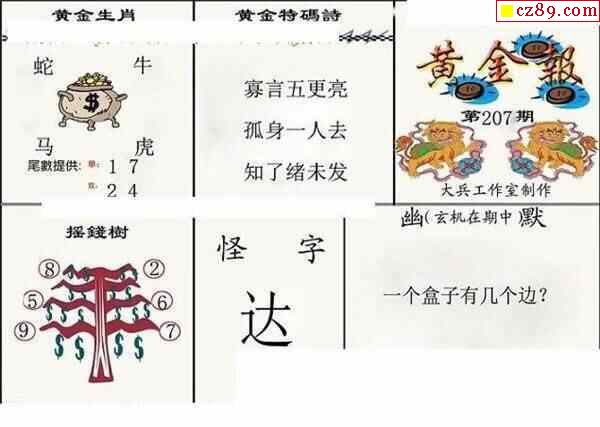 cz89.com
黄金生肖
蛇 牛
马 虎
尾數提供: 单: 1 7
双: 2 4
黄金特碼詩
寡言五更亮
孤身一人去
知了绪未发
黄金報
第207期
大兵工作室制作
摇錢樹
⑧ ②
⑤ ⑥
⑨ ⑦
怪 字
达
幽(玄机在期中)默
一个盒子有几个边?